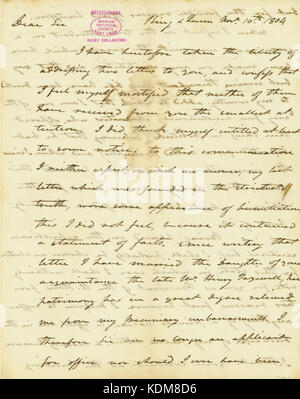 Dear Sir
King & Queen Nov. 10th 1804
JEFFERSONIANA
MISSOURI HISTORICAL SOCIETY
BIXBY COLLECTION
I have heretofore taken the liberty of
addressing two letters to you, and confess that
I feel myself mortified that neither of them
have received from you the smallest at
tention. I did think myself intitled at least
to some notice. to this communication
I neither expect or wish an answer, my last
letter which was founded in the strictest
truth wore some appearance of humiliation
this I did not feel, because it contained
a statement of facts, since writing that
letter I have married the daughter of your
acquaintance the late Mr. Henry Tazewell, her
patrimony has in a great degree relieved
me from my pecuniary embarrassments I
therefore Sir am no longer an applicant
for office, nor should I ever have been
alamy
Image ID: KDM8D6
www.alamy.com